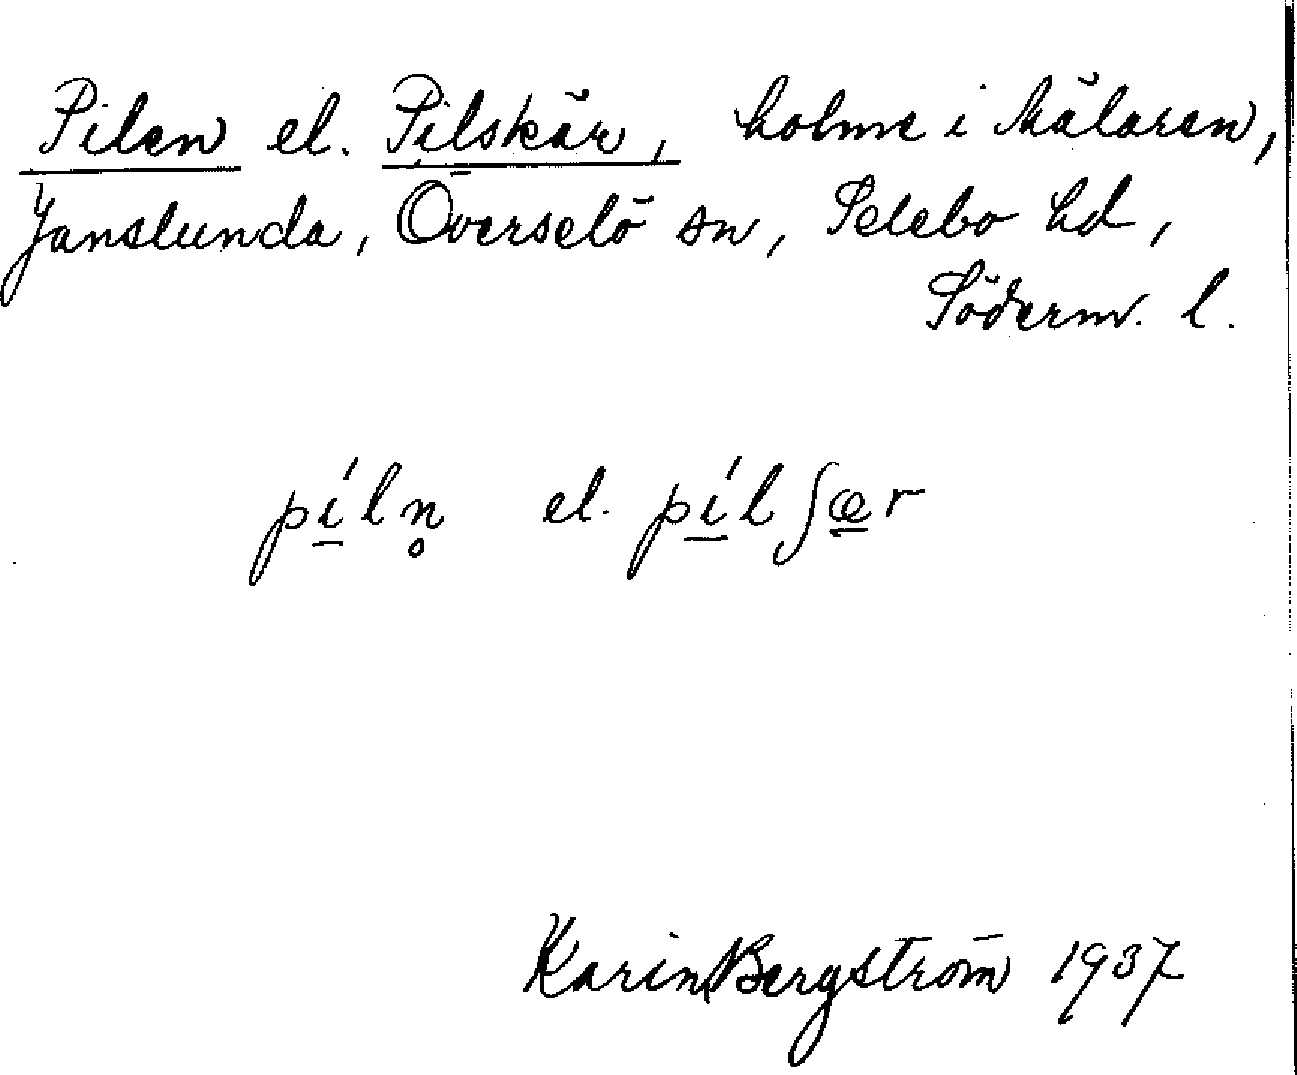 Pilen el. Pilskär, holme i Mälaren,
Janslunda, Överselö sn, Selebo hd,
Söderm. l.
pí̠ln̥ el. pí̠lʃæ̠r
Karin Bergström 1937